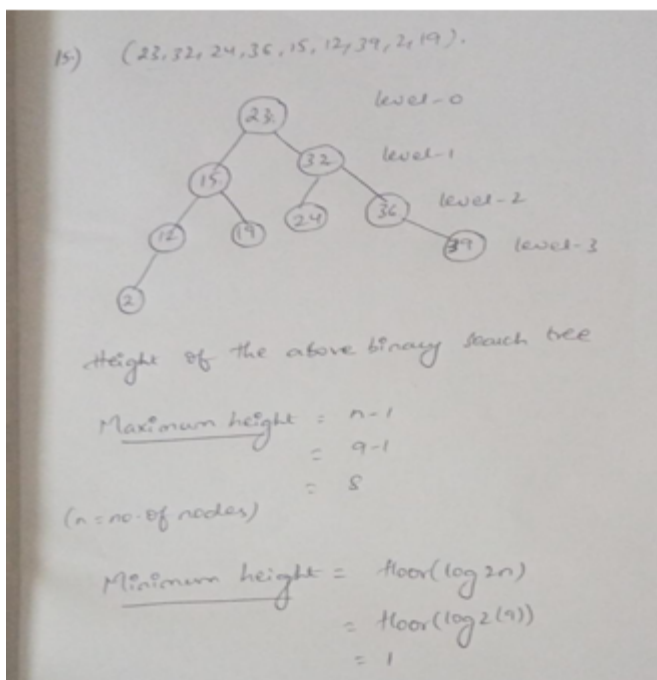 15.) (23,32,24,36,15,12,39,2,19).
23 level-0
32 level-1
15
24 36 level-2
12 19
39 level-3
2
Height of the above binary search tree
Maximum height = n-1
= 9-1
= 8
(n = no. of nodes)
Minimum height = floor(log 2n)
= floor(log2(9))
= 1